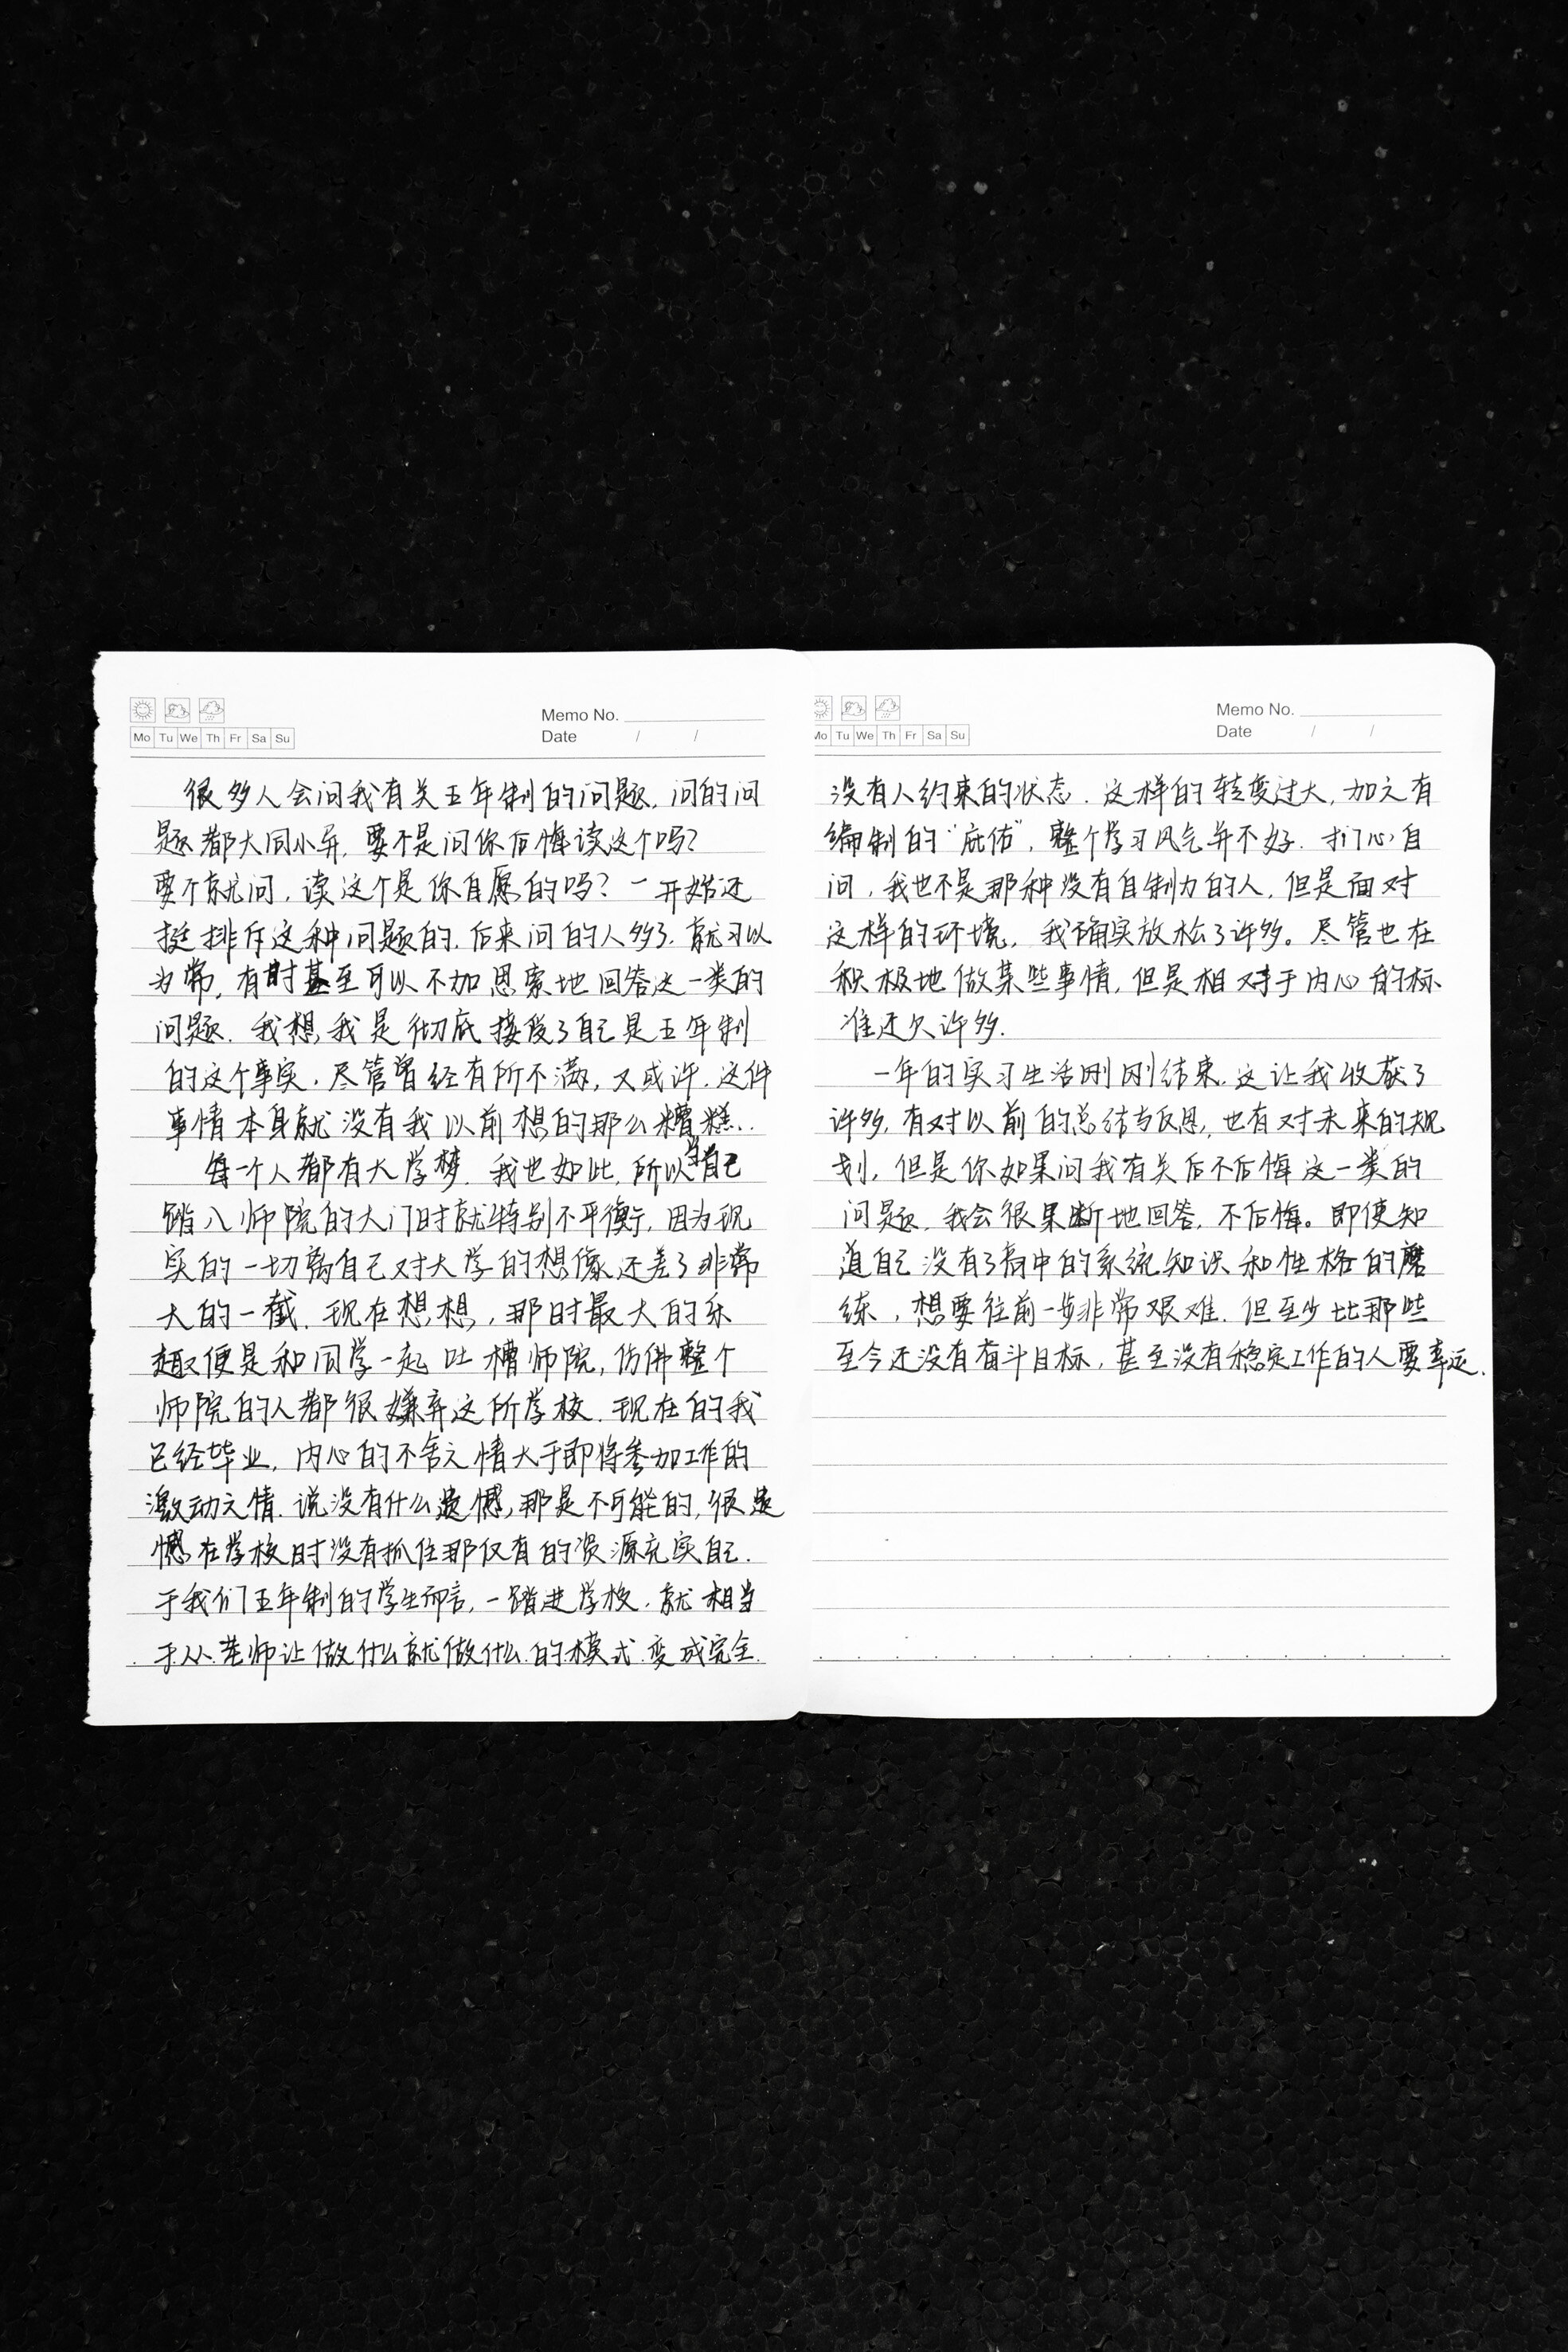 Memo No.
Date / /
Mo Tu We Th Fr Sa Su
很多人会问我有关五年制的问题，问的问
题都大同小异，要不是问你后悔读这个吗？
要不就问，读这个是你自愿的吗？一开始还
挺排斥这种问题的，后来问的人多了，就习以
为常，有时甚至可以不加思索地回答这一类的
问题。我想，我是彻底接受了自己是五年制
的这个事实，尽管曾经有所不满，又或许，这件
事情本身就没有我以前想的那么糟糕..
每一个人都有大学梦，我也如此，所以当自己
踏入师院的大门时就特别不平衡，因为现
实的一切离自己对大学的想像还差了非常
大的一截。现在想想，那时最大的乐
趣便是和同学一起吐槽师院，仿佛整个
师院的人都很嫌弃这所学校。现在的我
已经毕业，内心的不舍之情大于即将参加工作的
激动之情。说没有什么遗憾，那是不可能的，很遗
憾在学校时没有抓住那仅有的资源充实自己。
于我们五年制的学生而言，一踏进学校，就相当
于从老师让做什么就做什么的模式变成完全
Memo No.
Date / /
Mo Tu We Th Fr Sa Su
没有人约束的状态。这样的转变过大，加之有
编制的“庇佑”，整个学习风气并不好。扪心自
问，我也不是那种没有自制力的人，但是面对
这样的环境，我确实放松了许多。尽管也在
积极地做某些事情，但是相对于内心的标
准还欠许多。
一年的实习生活刚刚结束，这让我收获了
许多，有对以前的总结与反思，也有对未来的规
划，但是你如果问我有关后不后悔这一类的
问题，我会很果断地回答，不后悔。即使知
道自己没有了高中的系统知识和性格的磨
练，想要往前一步非常艰难，但至少比那些
至今还没有奋斗目标，甚至没有稳定工作的人要幸运。